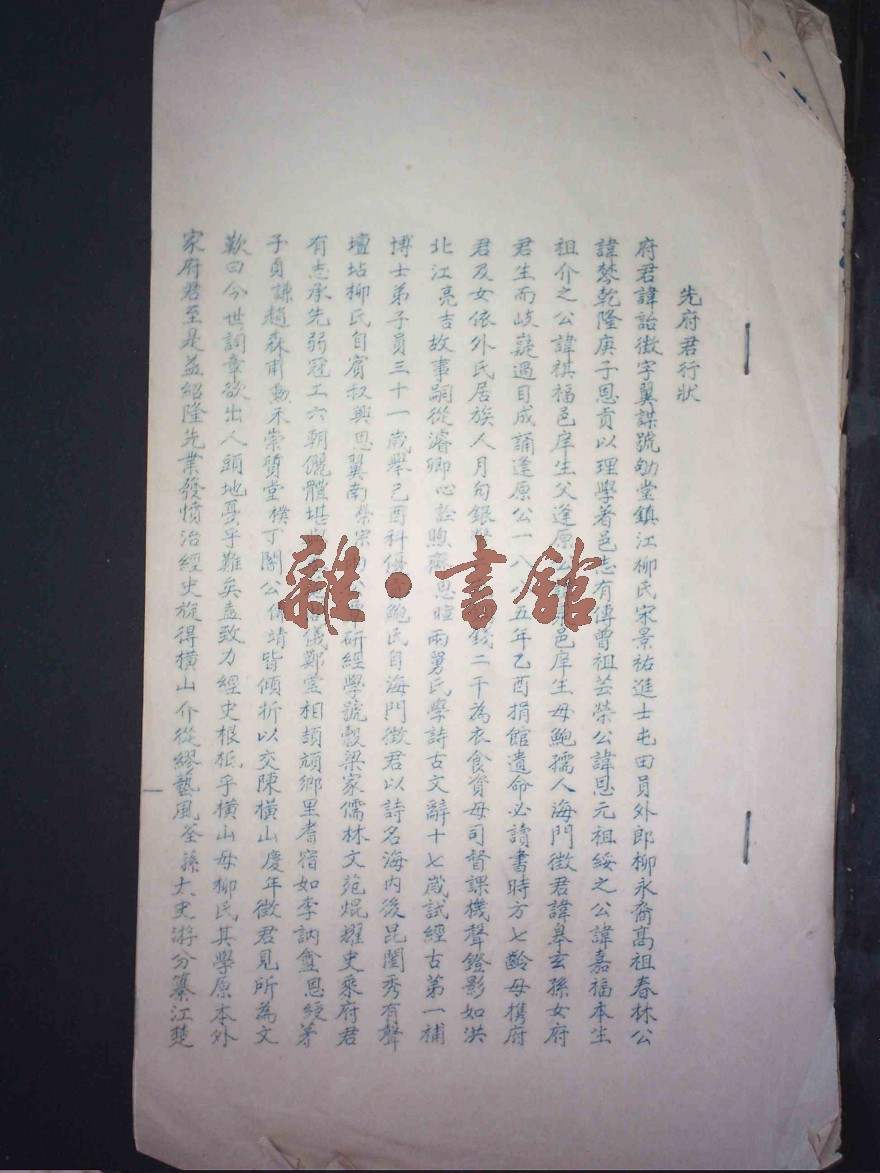 先府君行狀
府君諱詒徵字翼謀號劬堂鎮江柳氏宋景祐進士屯田員外郎柳永裔髙祖春林公
諱棽乾隆庚子恩貢以理學著邑志有傳曾祖芸榮公諱恩元祖綏之公諱嘉福本生
祖介之公諱祺福邑庠生父逢原公 邑庠生母鮑孺人海門徵君諱臯玄孫女府
君生而岐嶷過目成誦逢原公一八八五年乙酉捐館遺命必讀書時方七齡母携府
君及女依外氏居族人月匄銀 錢二千為衣食資母司督課機聲鐙影如洪
北江亮吉故事嗣從濬卿心 煦齋恩暄兩舅氏學詩古文辭十七歲試經古第一補
博士弟子員三十一歲舉己酉科優 鮑氏自海門徵君以詩名海内後昆閨秀有聲
壇坫柳氏自賓叔興恩翼南榮宗兩公 研經學號穀梁家儒林文苑焜耀史乘府君
有志承先弱冠工六朝儷體堪與 儀鄭堂相頡頏鄉里耆宿如李訥盦恩綬茅
子貞謙趙森甫勳禾崇質堂樸丁闇公傳靖皆傾折以交陳横山慶年徵君見所為文
歎曰今世詞章欲出人頭地戛乎難矣盍致力經史根柢乎横山母柳氏其學原本外
家府君至是益紹隆先業發憤治經史旋得横山介從繆藝風荃孫太史游分纂江楚
雜·書館